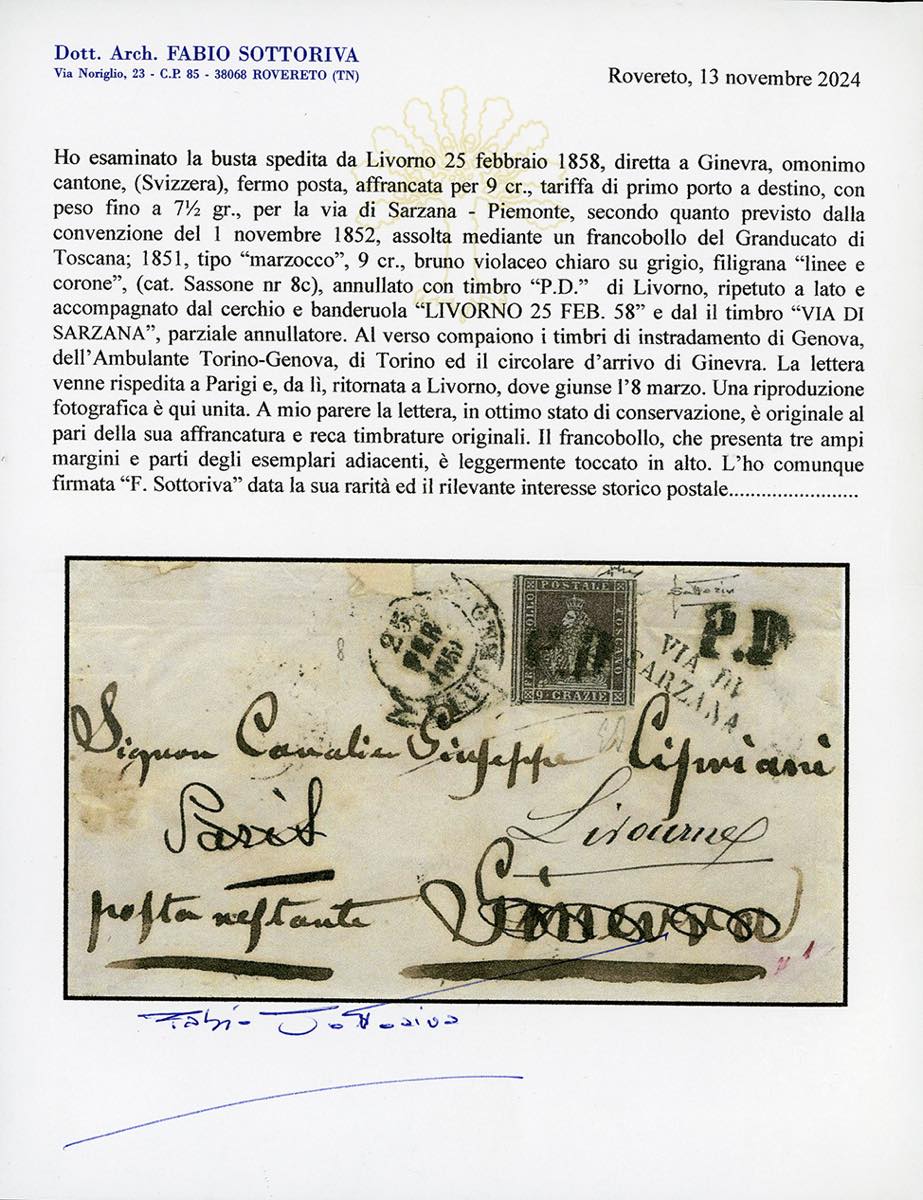 Dott. Arch. FABIO SOTTORIVA
Via Noriglio, 23 - C.P. 85 - 38068 ROVERETO (TN)
Rovereto, 13 novembre 2024
Ho esaminato la busta spedita da Livorno 25 febbraio 1858, diretta a Ginevra, omonimo
cantone, (Svizzera), fermo posta, affrancata per 9 cr., tariffa di primo porto a destino, con
peso fino a 7½ gr., per la via di Sarzana - Piemonte, secondo quanto previsto dalla
convenzione del 1 novembre 1852, assolta mediante un francobollo del Granducato di
Toscana; 1851, tipo “marzocco”, 9 cr., bruno violaceo chiaro su grigio, filigrana “linee e
corone”, (cat. Sassone nr 8c), annullato con timbro “P.D.” di Livorno, ripetuto a lato e
accompagnato dal cerchio e banderuola “LIVORNO 25 FEB. 58” e dal il timbro “VIA DI
SARZANA”, parziale annullatore. Al verso compaiono i timbri di instradamento di Genova,
dell’Ambulante Torino-Genova, di Torino ed il circolare d’arrivo di Ginevra. La lettera
venne rispedita a Parigi e, da lì, ritornata a Livorno, dove giunse l’8 marzo. Una riproduzione
fotografica è qui unita. A mio parere la lettera, in ottimo stato di conservazione, è originale al
pari della sua affrancatura e reca timbrature originali. Il francobollo, che presenta tre ampi
margini e parti degli esemplari adiacenti, è leggermente toccato in alto. L’ho comunque
firmata “F. Sottoriva” data la sua rarità ed il rilevante interesse storico postale........................
POSTALE
TOSCANO
9 GRAZIE
P D
P.D
VIA DI
SARZANA
25
8
Signor Cavalier Giuseppe Cipriani
Paris
Livourne
posta restante
Ginevra
1
Fabio Sottoriva